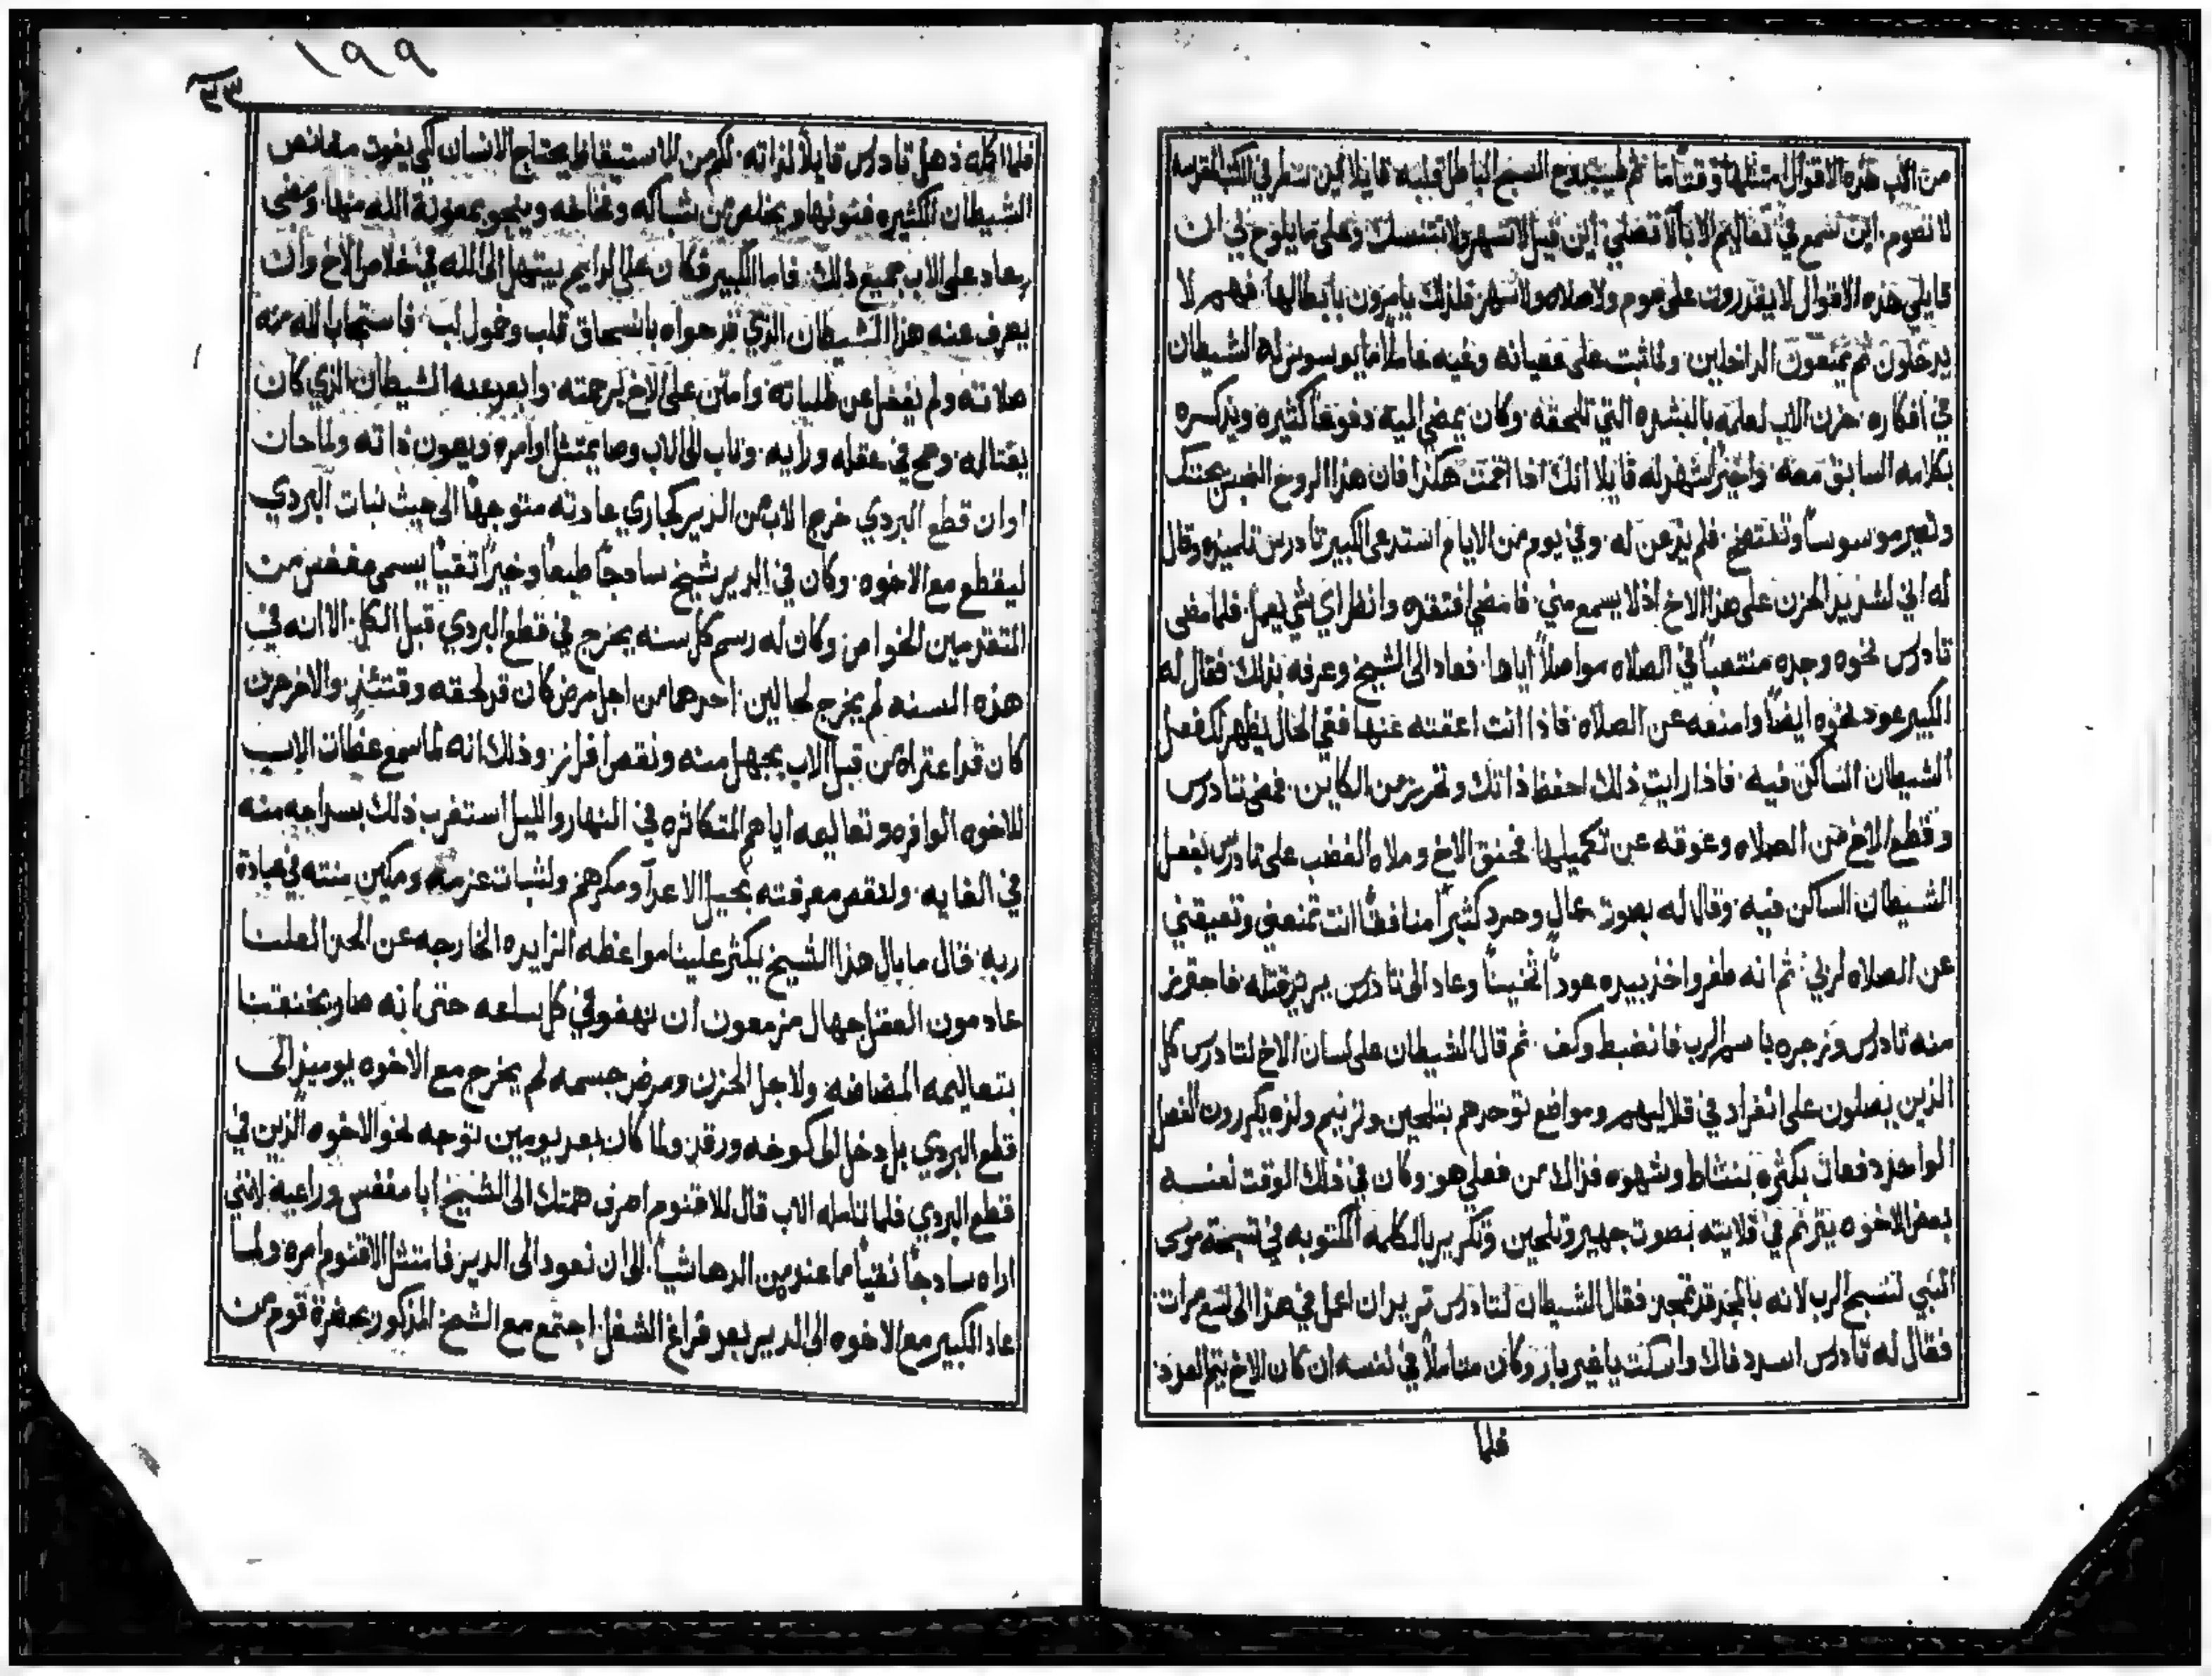 من الاب هذه الاقوال امتثلها وقتاً ما ثم طيب بروح السبح الباطل قلبه قايلا اين سطر في الكتب المقدسه
لا نصوم. اين نسمع في تعاليم الابا لا تصلي اين قيل لا تسهر ولا تتنسك وعلى ما يلوح لي ان
قايلي هذه الاقوال لا يقدرون على صوم ولا صلاه ولا سهر فلذلك يامرون بابطالها. فهم لا
يدخلون ثم يمنعون الداخلين. ولما ثبت على عصيانه وغيه عاملاً ما يوسوس له الشيطان
في افكاره. حزن الاب لعلمه بالنشره التي تلحقه وكان يمضي اليه دفوعاً كثيره ويذكره
بكلامه السابق معه. واخيراً شهر له قايلا انك اذا اقمت هكذا فان هذا الروح الخبيث يحتنك
وتصير موسوساً وتفتضح. فلم يذعن له. وفي يوم من الايام استدعى الكبير تادرس تلميذه وقال
له اني لشديد الحزن على هذا الاخ اذ لا يسمع مني. فامضي افتقده وانظر اي شي يعمل. فلما مضى
تادرس نحوه وجده منتصباً في الصلاه مواصلاً اياها. فعاد الى الشيخ وعرفه بذلك فقال له
الكبير عود نحوه ايضاً وامنعه عن الصلاه. فاذا انت اعقته عنها ففي الحال يظهر لك فعل
الشيطان الساكن فيه. فاذا رايت ذلك احفظ ذاتك وتحرز من الكاين. فمضى تادرس
وقطع الاخ من الصلاه وعوقه عن تكميلها. فحنق الاخ وملاه الغضب على تادرس بفعل
الشيطان الساكن فيه. وقال له بصوت عال وحرد كثيراً منافقاً انت تمنعني وتعيقني
عن الصلاه لربي. ثم انه طفر واخذ بيده عوداً ثخيناً وعاد الى تادرس يريد قتله. فاحترز
منه تادرس وزجره باسم الرب فانضبط وكف. ثم قال الشيطان على لسان الاخ لتادرس كل
الذين يصلون على انفراد في قلاليهم ومواضع توحدهم بتلحين وترنيم ولذه يكررون الفصل
الواحد دفعات بكثره بنشاط وشهوه فذلك من فعلي هو. وكان في ذلك الوقت لعنسه
بعض الاخوه يترنم في قلايته بصوت جهير وتلحين وتكرير بالكلمه المكتوبه في تسبحة موسى
النبي لنسبح الرب لانه بالمجد قد تمجد فقال الشيطان لتادرس تريد ان اعمل في هذا الى تسع مرات
فقال له تادرس اسدد فاك واسكت يا غير بار وكان متاملاً في نفسه ان كان الاخ يتم العود
فلما
١٩٩
فلما اكمله ذهل تادرس قايلاً لذاته. لكم من الاستيقاظ يحتاج الانسان لكي يفوت مقانص
الشيطان الكثيره فنونها ويخلص من شباكه وفخاخه وينجو بمعونة الله منها. ومضى
وعاد على الاب جميع ذلك. فاما الكبير فكان على الدايم يبتهل الى الله في خلاص الاخ وان
يصرف عنه هذا الشيطان الذي قد حواه بانسحاق قلب وخول لب. فاستجاب الله منه
صلاته ولم يغفل عن طلباته. وامتن على الاخ برحمته. وابعد عنه الشيطان الذي كان
يقتاله. وصح في عقله ورايه. وتاب الى الاب وصار يمتثل اوامره ويصون ذاته ولما حان
اوان قطع البردي خرج الاب من الدير كجاري عادته متوجهاً الى حيث نبات البردي
ليقطع مع الاخوه. وكان في الدير شيخ ساذجاً طيعاً وخيراً تقياً يسمى مغفس من
المتقدمين الخواص وكان له رسم كل سنه يخرج في قطع البردي قبل الكل. الا انه في
هذه السنه لم يخرج لحالين. احدهما من اجل مرض كان قد لحقه وقتئذ. والاخر حزن
كان قد اعتراه من قبل الاب بجهل منه ونقص افراز وذلك انه لما سمع عظات الاب
للاخوه الوافره وتعاليمه اياهم المتكاثره في النهار والليل استغرب ذلك بسذاجه منه
في الغايه. ولنقص معرفته بحيل الاعدآ ومكرهم ولثبات عزمه ومكين سنته في عبادة
ربه. قال ما بال هذا الشيخ يكثر علينا مواعظه الزايده الخارجه عن الحد العلنا
عادمون العقل جهال مزمعون ان نهفو في كل ساعه حتى انه صار يخنقنا
بتعاليمه المضاضه ولاجل الحزن ومرض جسمه لم يخرج مع الاخوه يوميذ الى
قطع البردي بل دخل الى كوخه ورقد ولما كان بعد يومين توجه نحو الاخوه الذين في
قطع البردي فلما تامله الاب قال للاقنوم اصرف همتك الى الشيخ ابا مغفس وراعيه لانني
اراه ساذجاً نقياً ما عنده من الدها شياً الى ان نعود الى الدير فامتثل الاقنوم امره ولما
عاد الكبير مع الاخوه الى الدير بعد فراغ الشغل. اجتمع مع الشيخ المذكور بحضرة قوم من